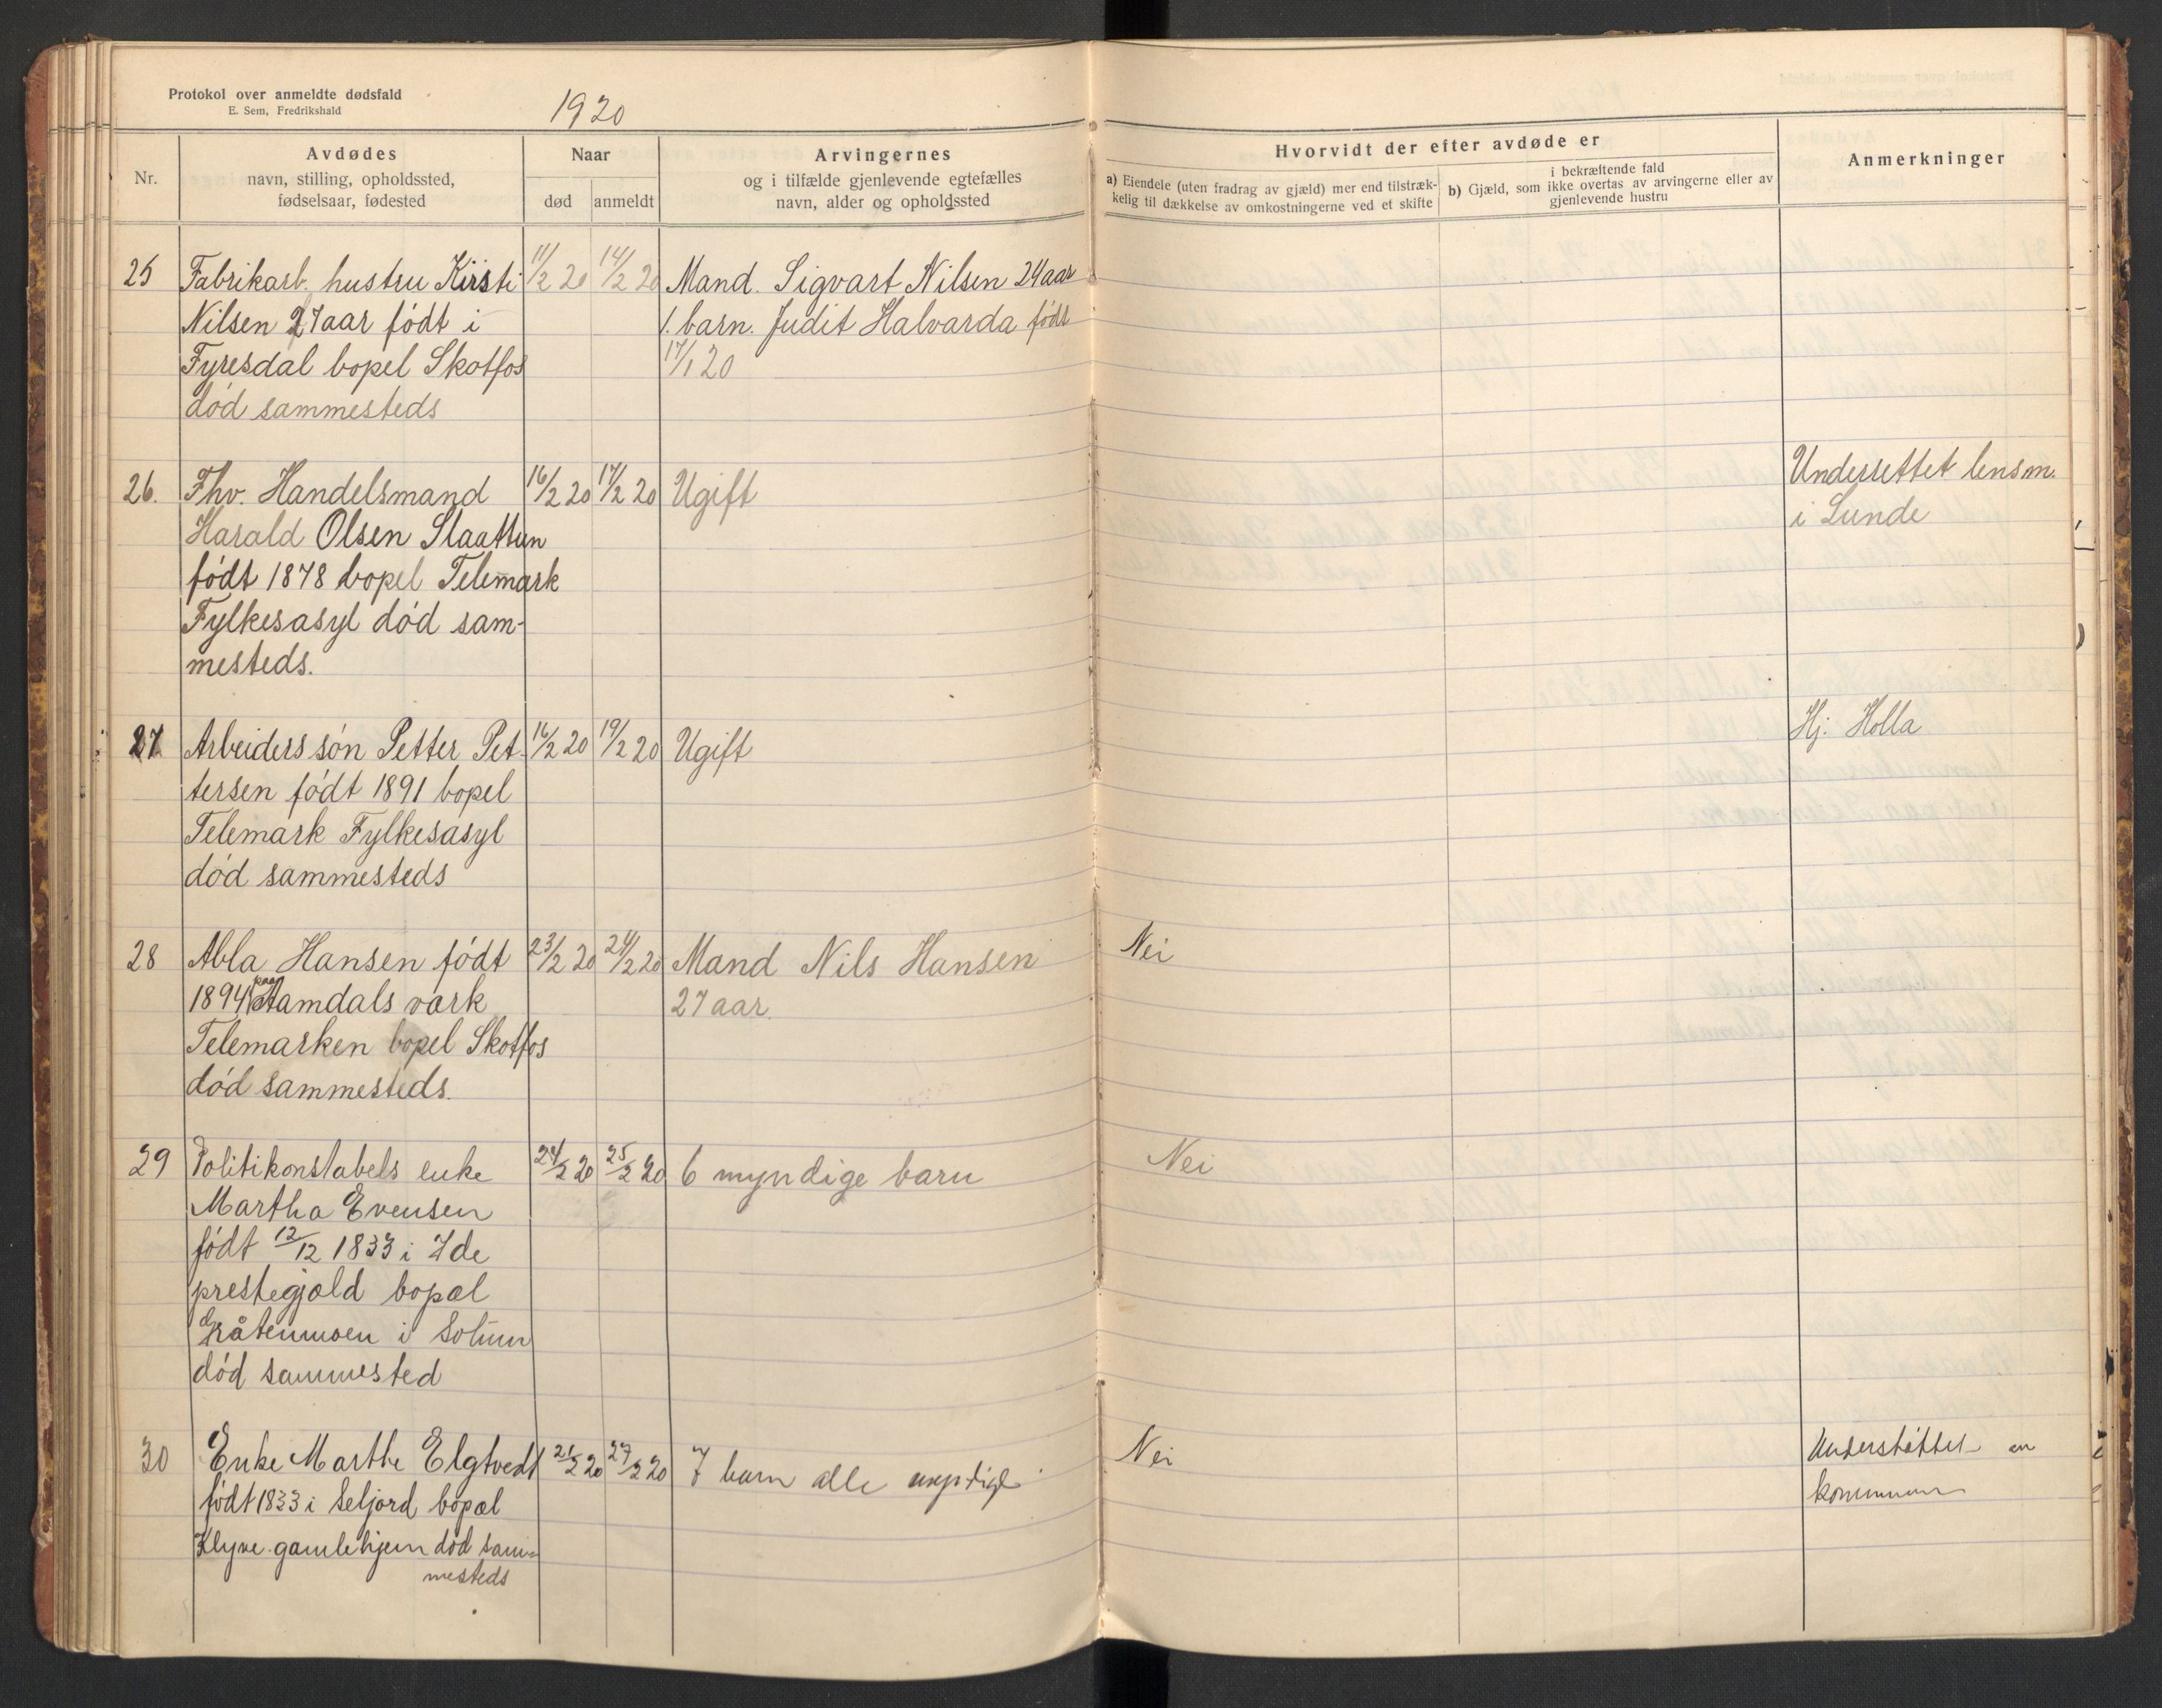 Protokol over anmeldte dødsfald
E. Sem, Fredrikshald
1920
Nr.
Avdødes
navn, stilling, opholdssted,
fødselsaar, fødested
Naar
død anmeldt
Arvingernes
og i tilfælde gjenlevende egtefælles
navn, alder og opholdssted
Hvorvidt der efter avdøde er
a) Eiendele (uten fradrag av gjæld) mer end tilstræk-
kelig til dækkelse av omkostningerne ved et skifte
i bekræftende fald
b) Gjæld, som ikke overtas av arvingerne eller av
gjenlevende hustru
Anmerkninger
25 Fabrikarb. hustru Kirsti 11/2 20 14/2 20 Mand. Sigvart Nilsen 24 aar
Nilsen 27 aar født i 1. barn. Judit Halvarda født
Fyresdal bopel Skotfos 17/1 20
død sammesteds
26. Fhv. Handelsmand 16/2 20 17/2 20 Ugift Underrettet lensm.
Harald Olsen Slaattun i Lunde
født 1878 bopel Telemark
Fylkesasyl død sam-
mesteds.
27. Arbeiders søn Petter Pet- 16/2 20 19/2 20 Ugift Hj. Holla
tersen født 1891 bopel
Telemark Fylkesasyl
død sammesteds
28 Abla Hansen født 23/2 20 24/2 20 Mand Nils Hansen Nei
1894 paa Aamdals værk 27 aar.
Telemarken bopel Skotfos
død sammesteds.
29 Politikonstabels enke 24/2 20 25/2 20 6 myndige barn Nei
Martha Evensen
født 12/12 1833 i Ide
prestegjæld bopæl
i Solum
død sammested
30 Enke Marthe Elgtvedt 21/2 20 27/2 20 7 barn alle myndige Nei Understøttet av
født 1833 i Seljord bopæl kommunen
Klyve gamlehjem død sam-
mesteds